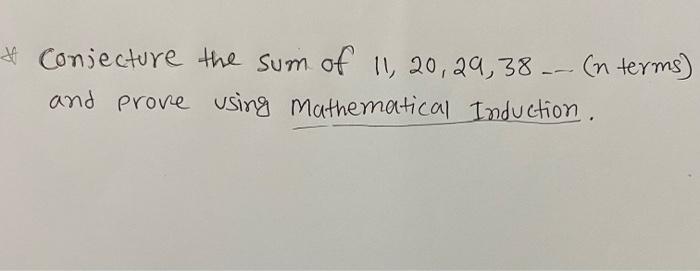 * Conjecture the sum of 11, 20, 29, 38 --- (n terms)
and prove using Mathematical Induction.